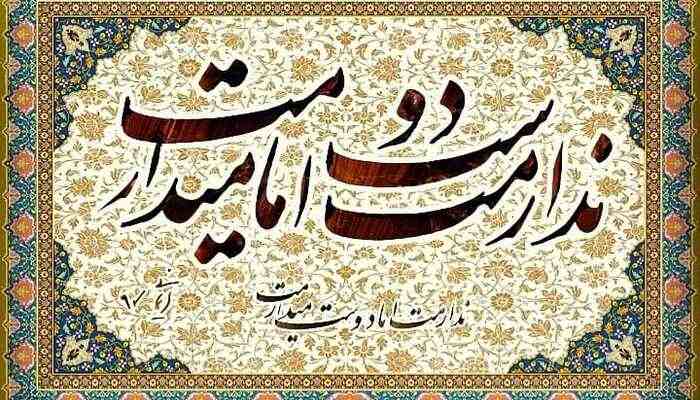 ندارمت اما دوست میدارمت
ندارمت اما دوست میدارمت
۹۷